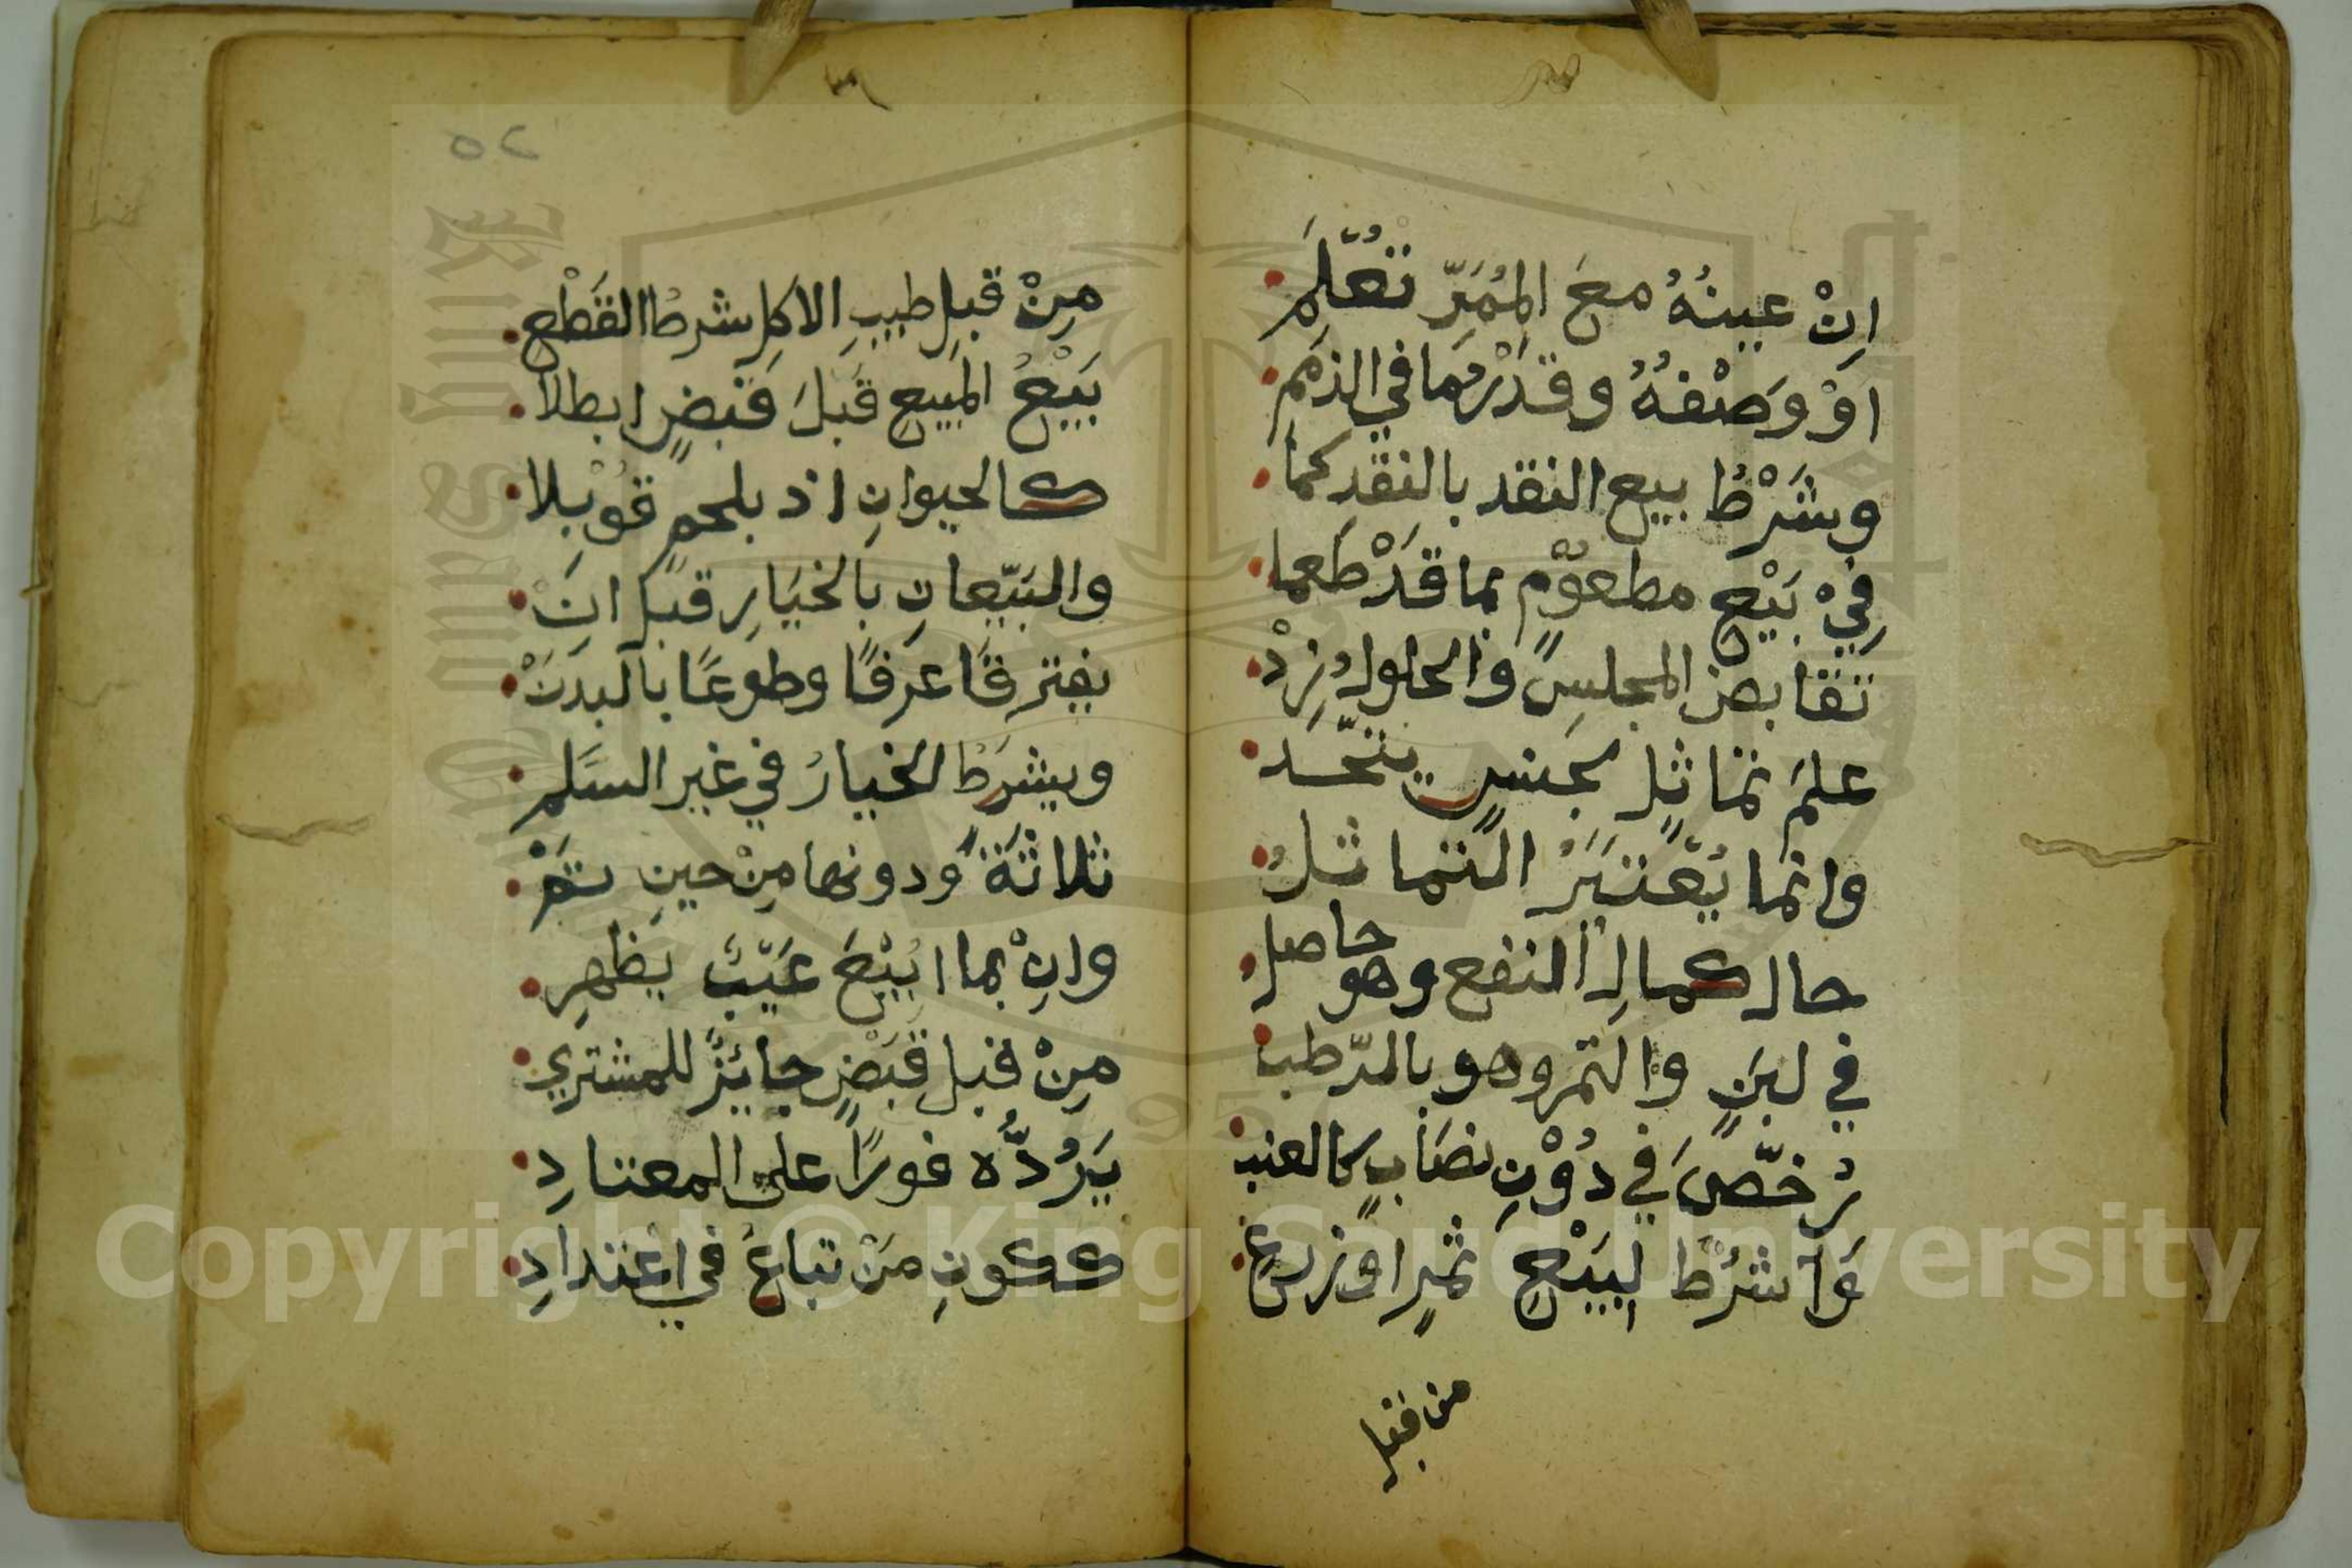 انْ عينُهُ معَ المُمَرِّ تعُّلِمَ
اوْ وَصْفهُ وقدْرُمَا في الذمَمِ
وشَرْطُ بيع النقد بالنقدِ كما
فِيْ بَيْعِ مطعوْمٍ بما قدْ طَعما
تَقَابض المجلسِ والحلولُ زِدْ
علمَ تماثلٍ بجنسٍ يتّحَد
وانما يُعْتبَرُ التماثلُ
حال كمالِ النفع وهو حاصلُ
في لبَنٍ والتمر وهو بالرّطب
رُخّصَ في دُوْنِ نصَابٍ كالعنب
وَاشرُطْ لبَيْعِ ثمرٍ اوْ زرعِ
من قبل
٥٢
مِنْ قبلِ طيبِ الاكلِ شرطُ القَطْعِ
بَيْعُ المَبيعِ قبَلَ قَبْضٍ ابطلا
كالحيوانِ اذ بلحمٍ قوْبِلا
والبَيّعانِ بالخيَارِ قبل انْ
يفترقَا عرَفًا وطوعًا بالبدَنْ
ويشرَطُ الخيارُ في غير السَلمِ
ثلاثَةً ودونها مِنْ حينِ تمَّ
وانْ بما ابيْعَ عَيْبٌ يظهرِ
مِنْ قبل قَبْضٍ جايزٌ للمشتري
يَرُدُّه فورًا على المعتادِ
ككونِ مَنْ تباعُ في اعتدادِ
Copyright © King Saud University
King Saud University
1957